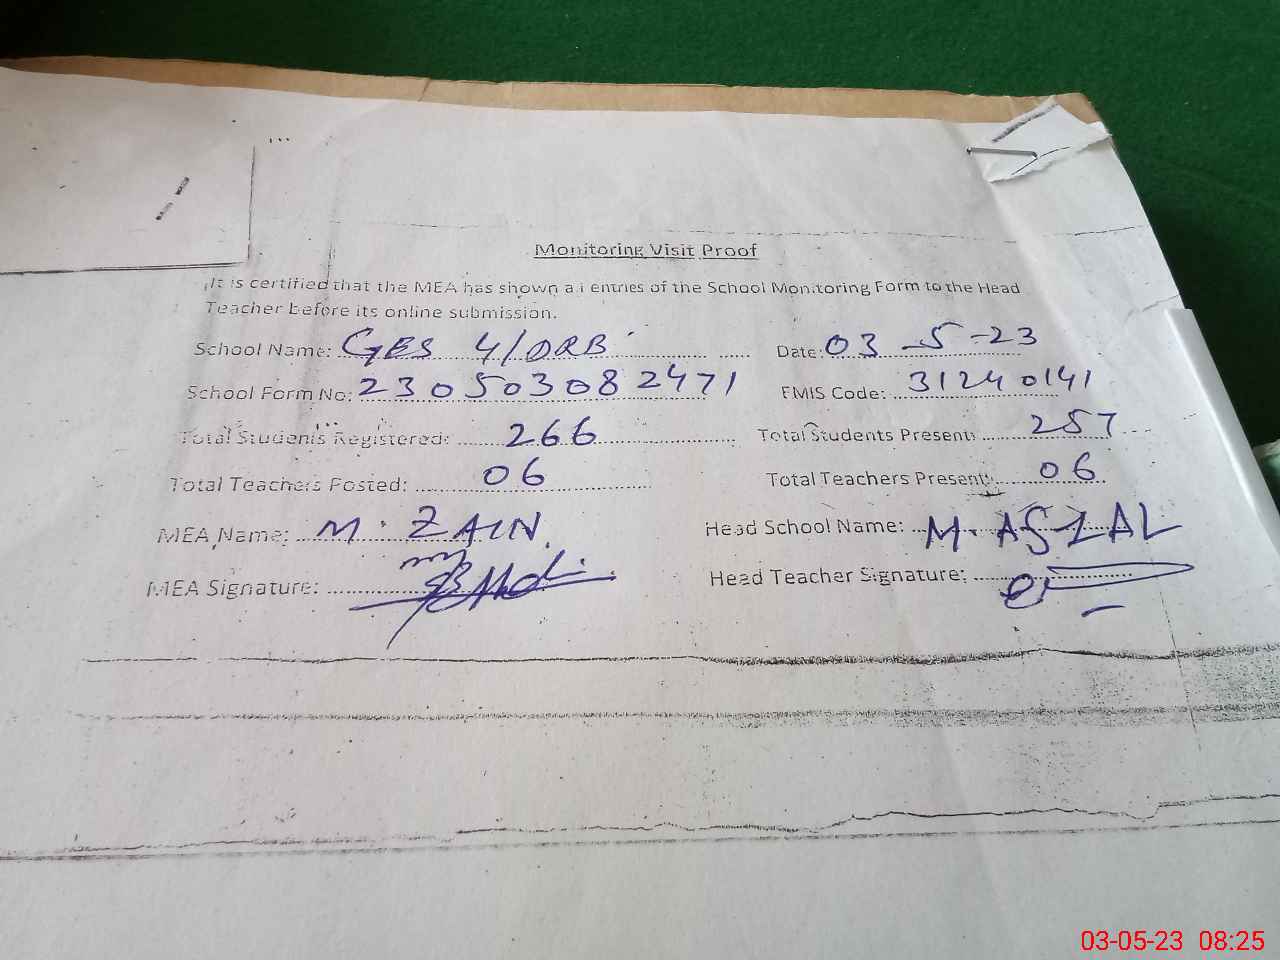 Monitoring Visit Proof
It is certified that the MEA has shown all entries of the School Monitoring Form to the Head
Teacher before its online submission.
School Name: GES 4/DRB Date: 03-5-23
School Form No: 230503082471 EMIS Code: 31240141
Total Students Registered: 266 Total Students Present: 257
Total Teachers Posted: 06 Total Teachers Present: 06
MEA Name: M. ZAIN Head School Name: M. AFZAL
MEA Signature: Head Teacher Signature:
03-05-23 08:25